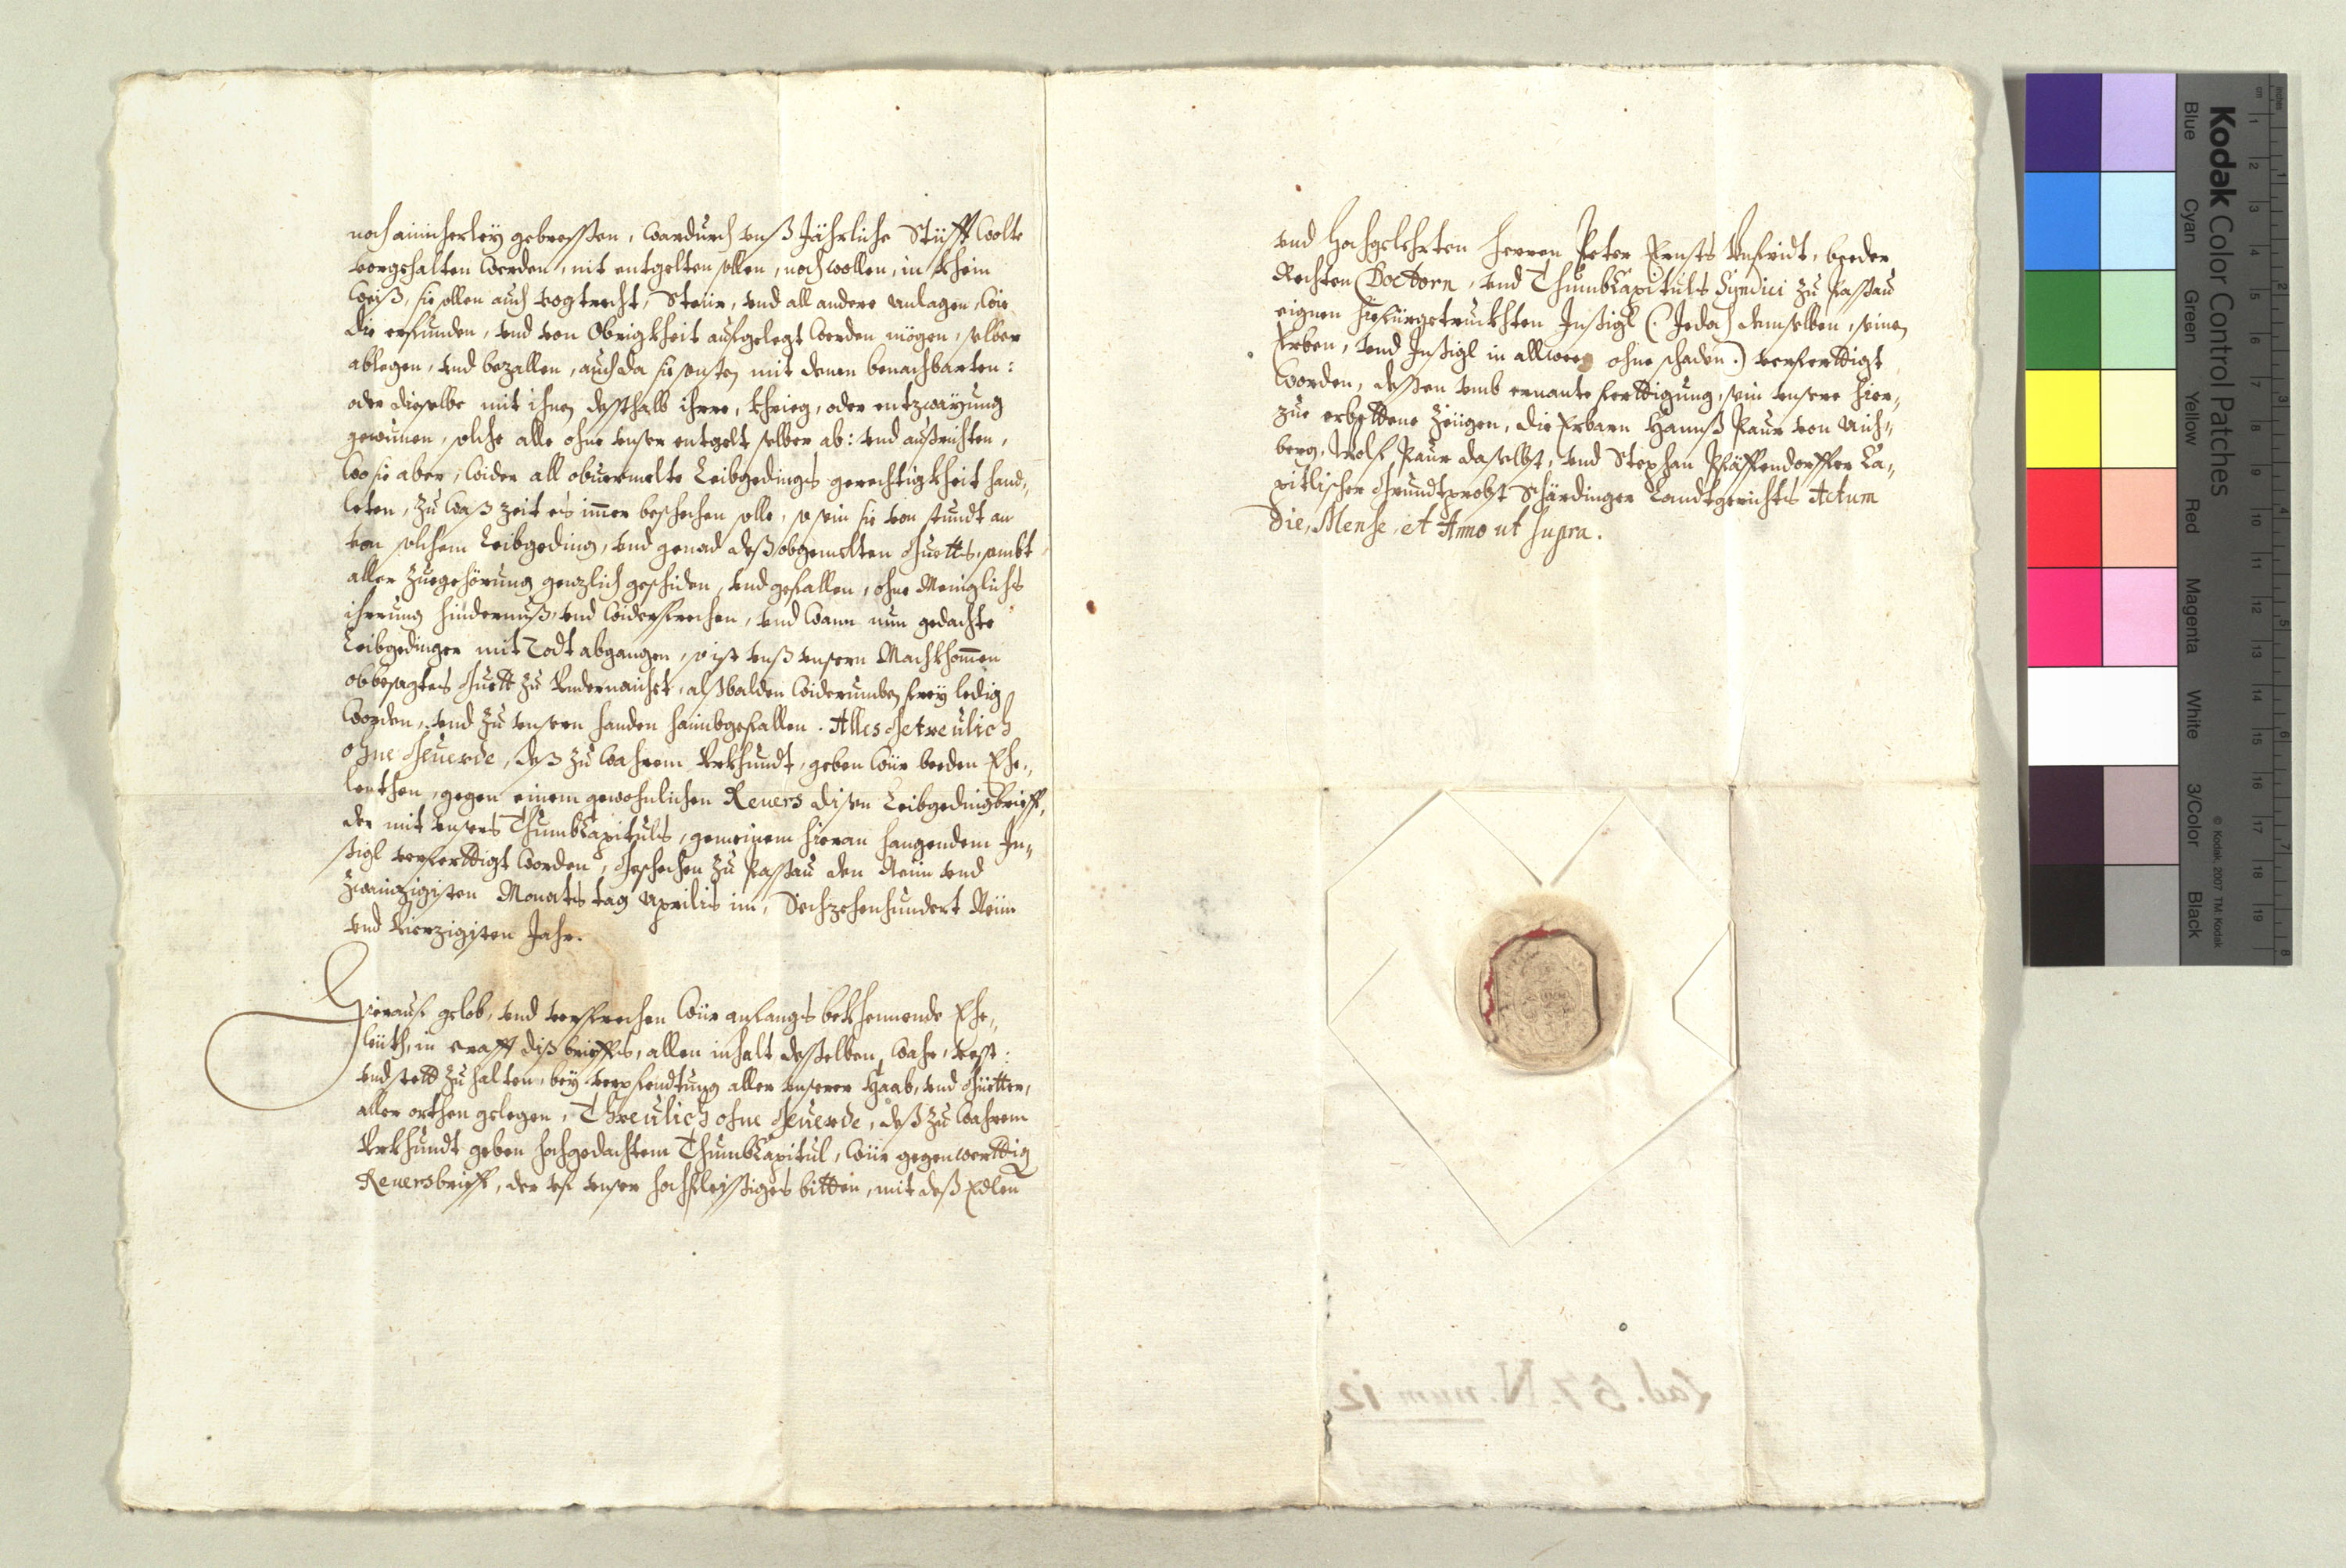 noch ainicherley gebressten, wardurch unß Jährliche Stüfft wolte
vorgehalten werden, nit entgelten sollen, noch wollen, in khein
weiß, sie sollen auch vogtrecht, Steür, und all andere anlagen, wie
die erfunden, und von Obrigkheit aufgelegt werden mögen, selber
ablegen, und bezallen, auch da sie sonsten mit denen benachbarten:
oder dieselbe mit ihnen desthalb ihrre, khrieg, oder entzwayung
gewunen, solche alle ohne unser entgelt selber ab: und außrichten,
wo sie aber, wider all obuermelte Leibgedings gerechtigkheit hand„
leten, zu waß zeit es im̄er beschechen solle, so sein sie von stundt an
von solchem Leibgeding, und genad deß obgemelten Guetts, sambt
aller zuegehörung genzlich geschiden, und gefallen, ohne Meniglichs
ihrrung hindernuß, und widersprechen, und wann nun gedachte
Leibgedinger mit Todt abgangen, so ist unß unsern Nachkhom̄en
obbesagtes Guett zu Undernaichet, alßbalden widerumben frey ledig
worden, und zu unsern handen haimbgefallen. Alles Getreülich
ohne Geuerde, deß zu wahrem Urkhundt, geben wür beeden Ehe„
leuthen, gegen einem gewohnlichen Reuers disen Leibgedingbrieff,
der mit unsers ThumbCapituls, gemeinem hieran hangendem In„
sigl verferttigt worden, Geschechen zu Passau den Neün und
zwainzigisten Monats tag Aprilis im, Sechzehenhundert Neün
und Vierzigisten Jahr.
Hierauf gelob, und versprechen wür anfangs bekhennende Ehe„
leüth, in crafft diß brieffs, allen inhalt desselben, wahr, vesst:
und stett zu halten, bey verpfendtung aller unserer Haab, und Guetter,
aller orthen gelegen, Threulich ohne Geuerde, deß zu wahrem
Urkhundt geben hochgedachtem ThumbCapitul, wür gegenwerttig
Reuersbrieff, der uf unser hochfleissiges bitten, mit deß Edlen
und Hochgelehrten Herren Peter Ernsts, beeder
Rechten Doctorn, und ThumbCapituls Syndici zu Passau
eignen hiefürgetruckhten Insigl (: Jedoch demselben, seinen
Erben, und Insigl in allweeg ohne schaden :) verferttigt
worden, dessen umb ernante ferttigung, sein unsere hier„
zue erbettene Zeügen, die Erbarn Hannß Paur von Aich„
berg, Wolf Paur daselbst, und Stephan Pfäffendorffer Ca„
pitlischer Grundtprobst Schärdinger Landtgerichts Actum
Die, Mense, et Anno ut supra.
Lad. 57. N. num 12
Kodak Color Control Patches
Blue Cyan Green Yellow Red Magenta White 3/Color Black
© Kodak, 2007 TM: Kodak
inches 1 2 3 4 5 6 7 8
cm 1 2 3 4 5 6 7 8 9 10 11 12 13 14 15 16 17 18 19